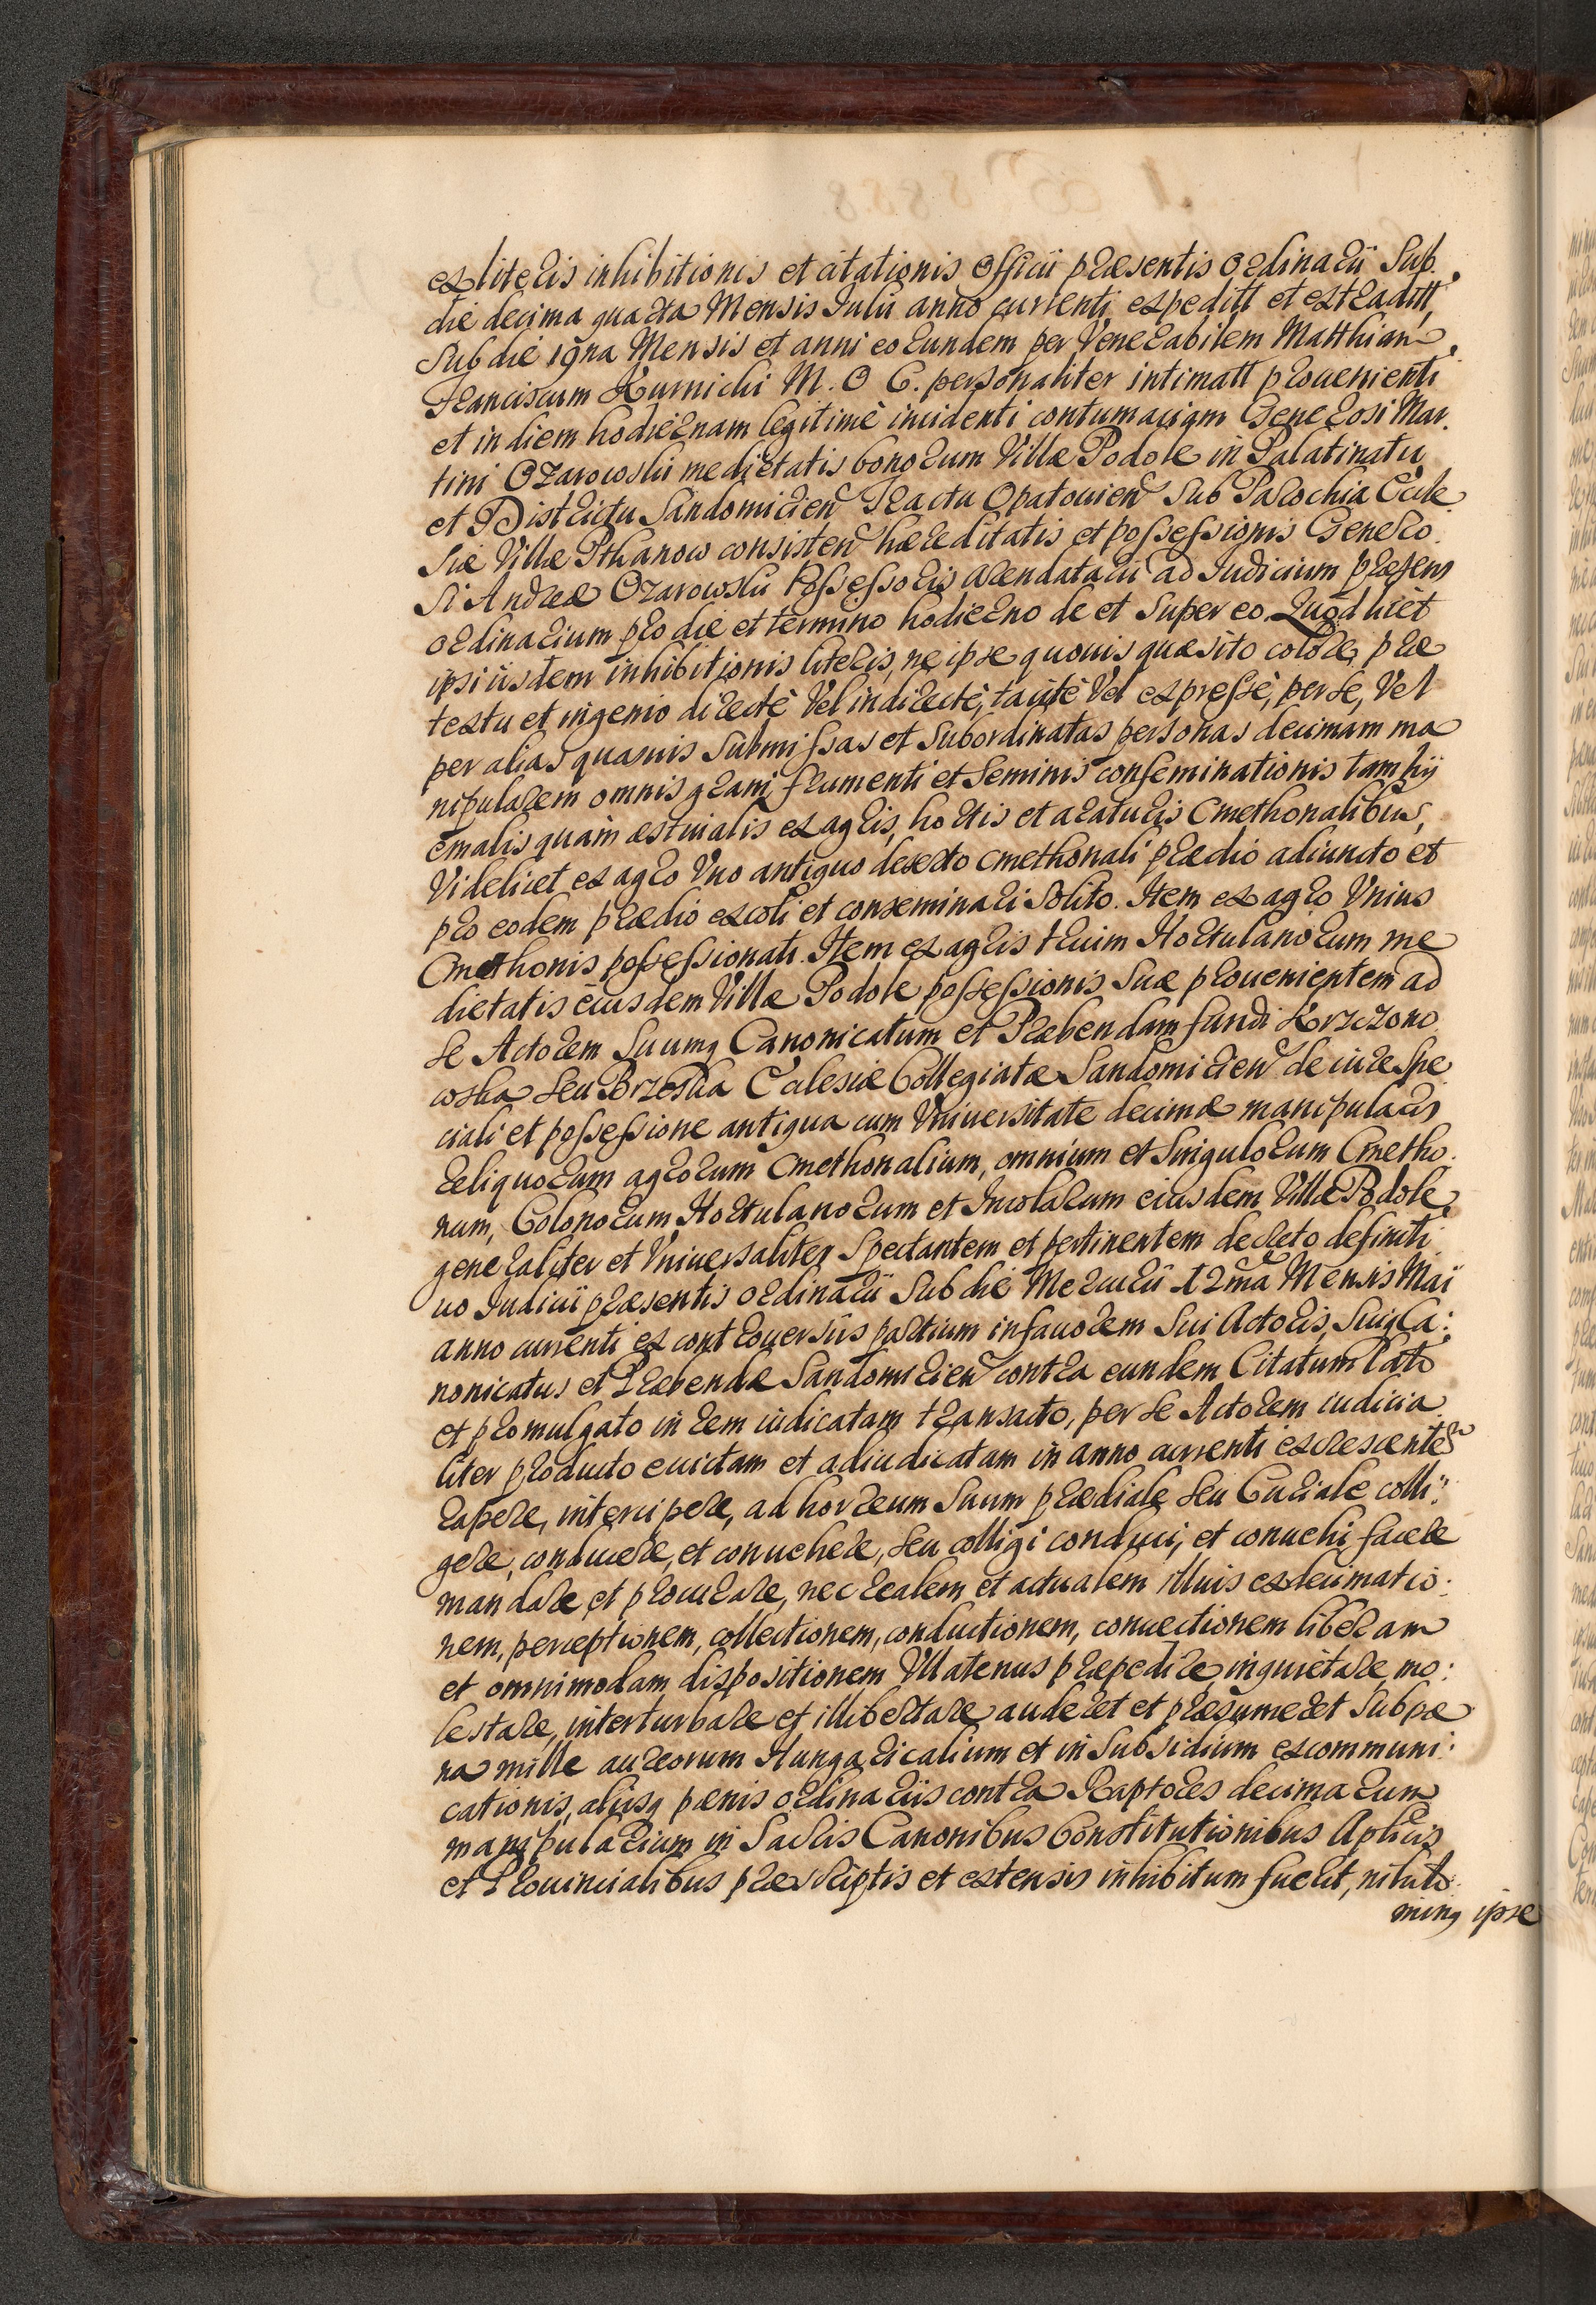 ex literis inhibitionis et citationis Officii præsentis Ordinarii Sub.
die decima quarta Mensis Julii anno currenti expeditt et extraditt,
Sub die 19na Mensis et anni eorundem per Venerabilem Matthiam
Franciscum Kurnicki M. O C. personaliter intimatt prouenienti
et in diem hodiernam legitimè incidenti contumaciam Generosi Mar.
tini Ozarowski medietatis bonorum Villæ Podole in Palatinatu
et Districtu Sandomirien Tractu Opatouien Sub Parochia Eccle
siæ Villæ Ptkanow consisten hæreditatis et possessionis Genero
si Andreæ Ozarowski Possessoris Arendatarii ad Judicium præsens
ordinarium pro die et termino hodierno de et Super eo. Quod licèt
ipsi iisdem inhibitionis literis, ne ipse quouis quæsito colore, præ
textu et ingenio directè Vel indirectè, tacitè Vel expressè, per se, Vel
per alias quasuis Submissas et Subordinatas personas decimam ma
nipularem omnis grani frumenti et Seminis conseminationis tam hy
emalis quàm æstiualis ex agris, hortis et araturis Cmethonalibus,
Videlicet ex agro Vno antiquo deserto cmethonali prædio adiuncto et
pro eodem prædio excoli et conseminari Solito. Item ex agro Vnius
Cmethonis possessionati. Item ex agris trium Hortulanorum me
dietatis eiusdem Villæ Podole possessionis Suæ prouenientem ad
Se Actorem Suumq Canonicatum et Præbendam fundi Korzczono
wska Seu Brzeska Ecclesiæ Collegiatæ Sandomirien de iure Spe
ciali et possessione antiqua cum Vniuersitate decimæ manipularis
reliquorum agrorum Cmethonalium, omnium et Singulorum Cmetho.
num, Colonorum, Hortulanorum et Incolarum eiusdem Villæ Podole,
generaliter et Vniuersaliter Spectantem et pertinentem decreto definiti
uo Judicii præsentis ordinarii Sub die Mercurii 12ma Mensis Maii
anno currenti ex controuersiis partium in fauorem Sui Actoris, Suiq Ca:
nonicatus et Præbendæ Sandomirien contra eundem Citatum lato
et promulgato in rem iudicatam transacto, per Se Actorem iudicia
liter producto euictam et adiudicatam in anno currenti excrescentem
rapere, intercipere, ad horreum Suum prædiale Seu Curiale colli:
gere, conducere, et conuehere, Seu colligi conduci, et conuehi facere
mandare et procurare, nec realem et actualem illius exdecimatio:
nem, perceptionem, collectionem, conductionem, conuectionem liberam
et omnimodam dispositionem Vllatenus præpedire, inquietare, mo:
lestare, interturbare et illibertare auderet et præsumeret Sub pœ
na mille aureorum Hungaricalium et in Subsidium excommuni:
cationis, aliisq pœnis ordinariis contra Raptores decimarum
manipularium in Sacris Canonibus Constitutionibus Aplicis
et Prouincialibus præscriptis et extensis inhibitum fuerit, nihilo
minq ipse